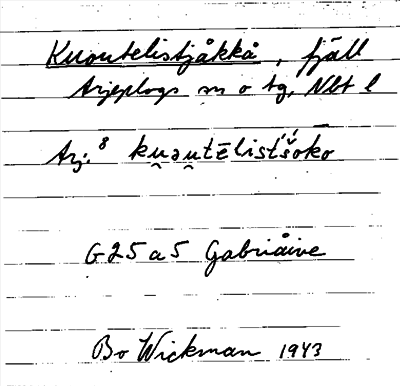 Kuoutelistjåkkå, fjäll
Arjeplogs sn o tg, Nbt l
Arj. 8 ku̯əu̯tēlist́š́ōkō
G25a5 Gabriåive
Bo Wickman 1943